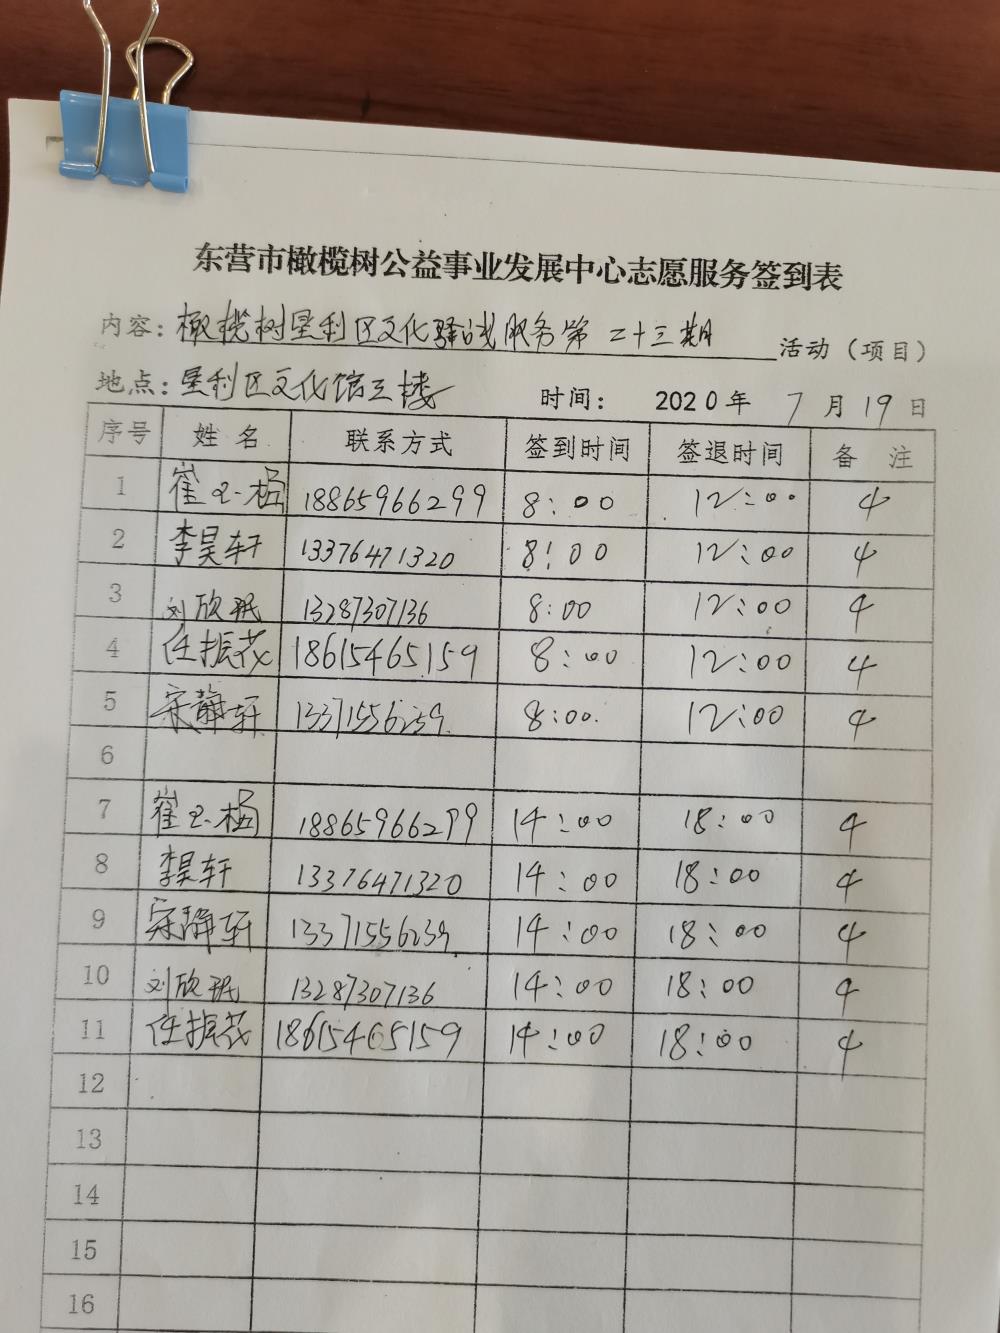 东营市橄榄树公益事业发展中心志愿服务签到表
内容：橄榄树垦利区文化驿站服务第二十三期 活动（项目）
地点：垦利区文化馆三楼 时间： 2020年 7月19日
序号 姓名 联系方式 签到时间 签退时间 备 注
1 崔 18865966299 8:00 12:00 4
2 李昊轩 13376471320 8:00 12:00 4
3 刘欣珉 13287307136 8:00 12:00 4
4 任振花 18615465159 8:00 12:00 4
5 宋静轩 13371556239 8:00 12:00 4
6
7 崔 18865966299 14:00 18:00 4
8 李昊轩 13376471320 14:00 18:00 4
9 宋静轩 13371556239 14:00 18:00 4
10 刘欣珉 13287307136 14:00 18:00 4
11 任振花 18615465159 14:00 18:00 4
12
13
14
15
16